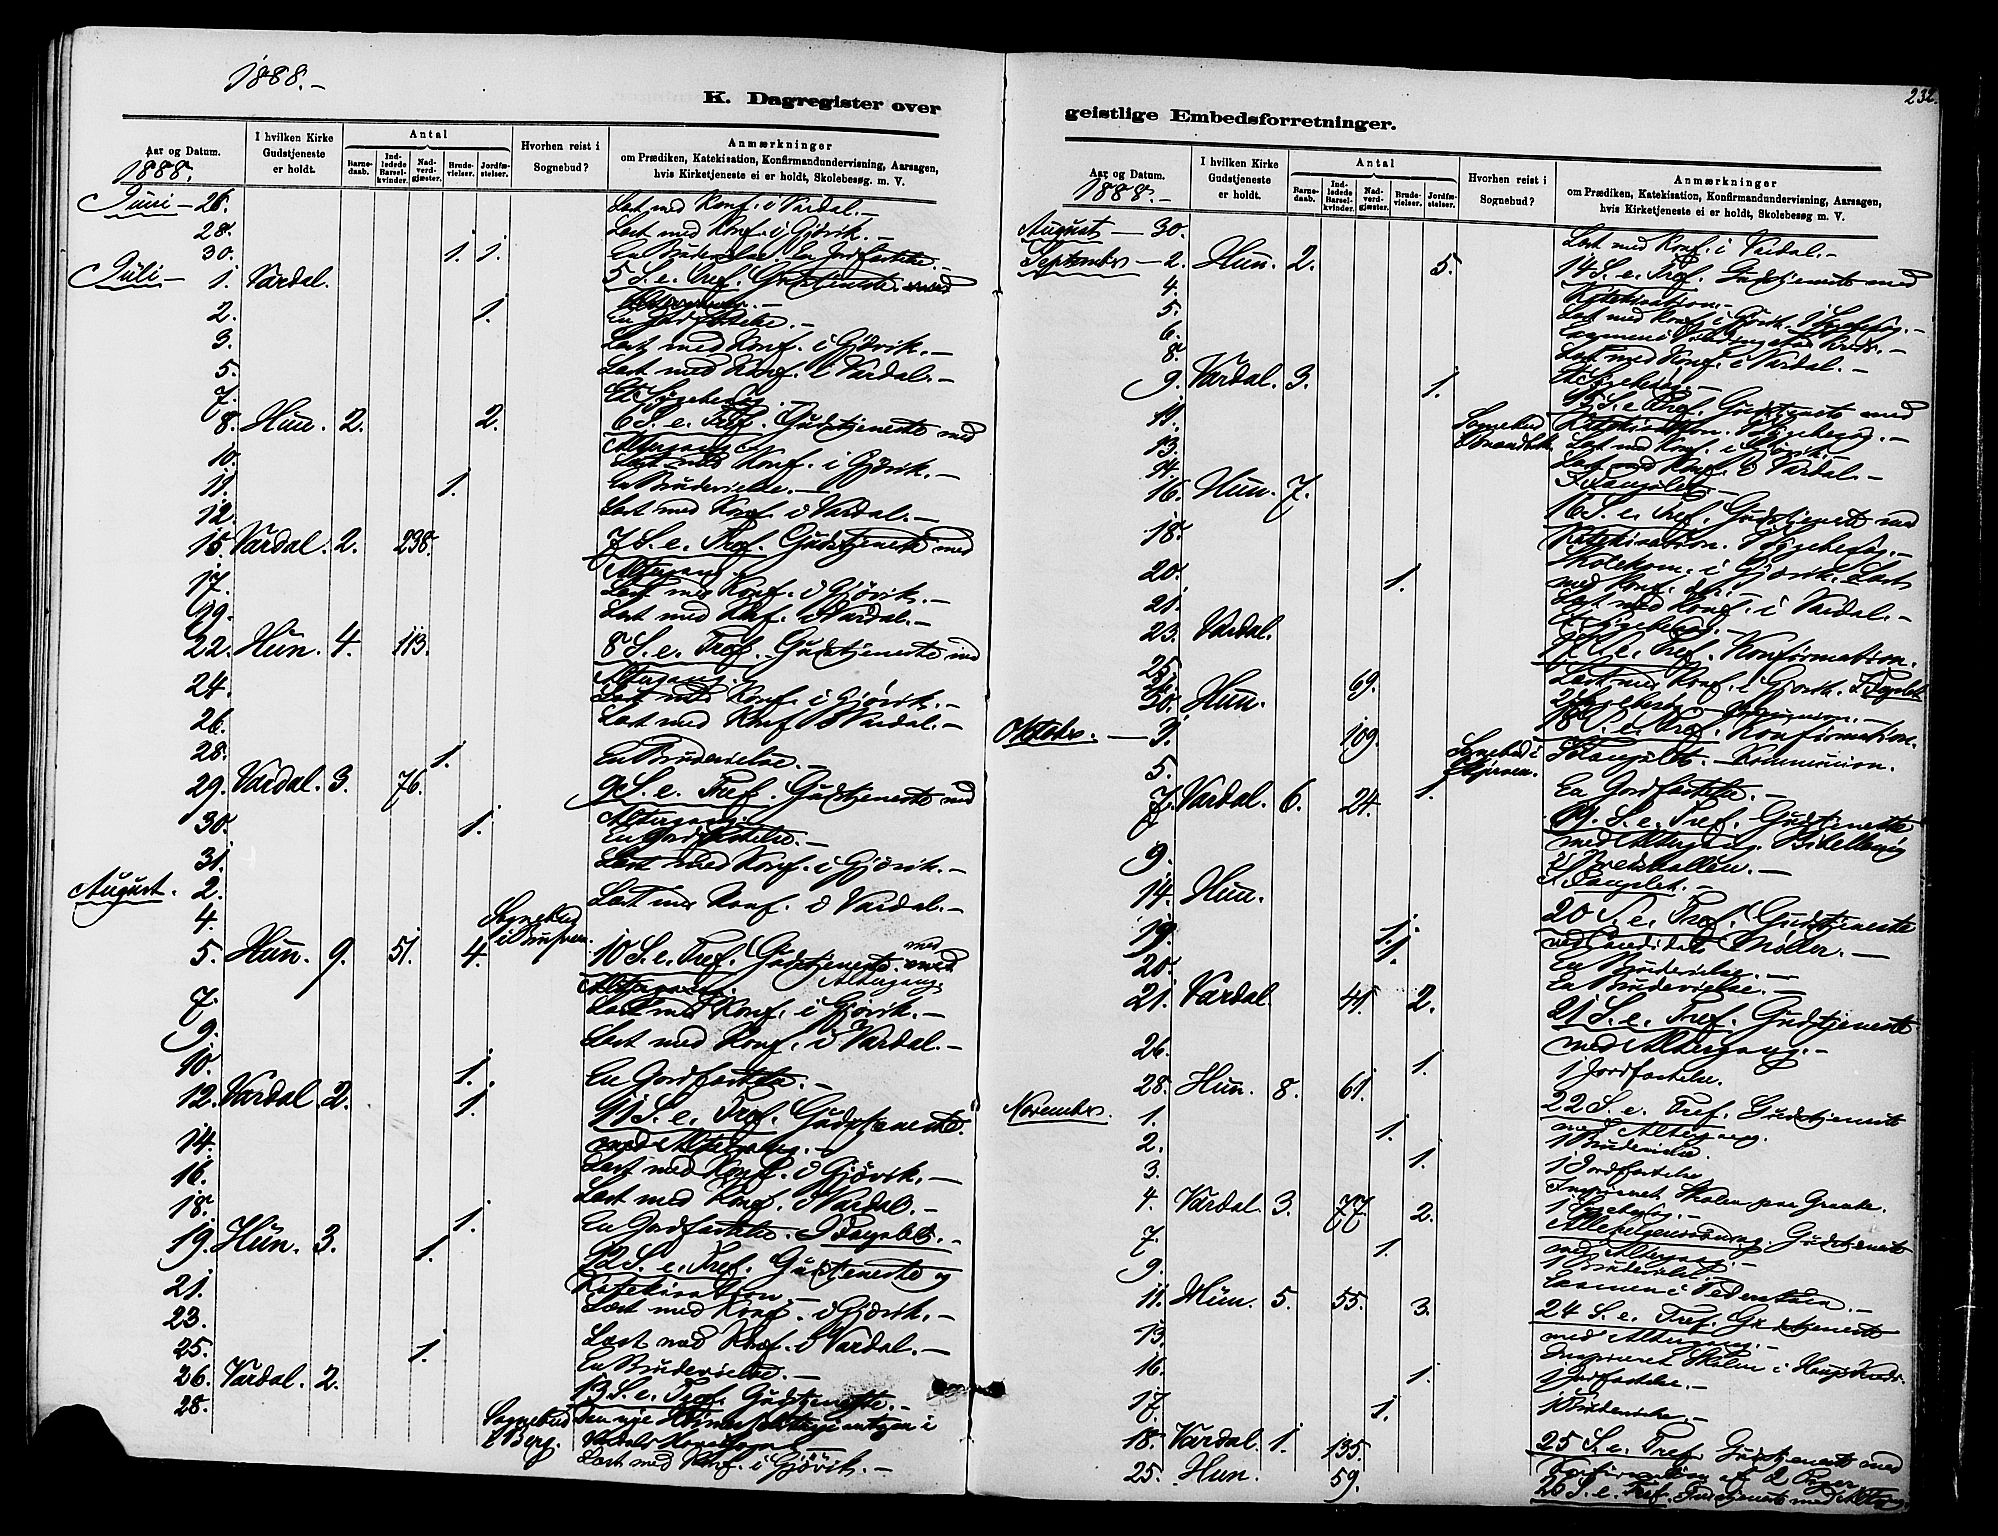 1888.-
K. Dagregister over
Aar og Datum.
I hvilken Kirke Gudstjeneste er holdt.
Antal
Barnedaab.
Indledede Barselkvinder.
Nadverdgjæster.
Brudevielser.
Jordfæstelser.
Hvorhen reist i Sognebud?
Anmærkninger
om Prædiken, Katekisation, Konfirmandundervisning, Aarsagen,
hvis Kirketjeneste ei er holdt, Skolebesøg m. V.
1888.
Juni - 26. Læst med Konf. i Vardal.-
28. Læst med Konf. i Gjövik.-
30. 1. 1. En Brudevielse. En Jordfæstelse.-
Juli - 1. Vardal. 5 S. e. Tref. Gudstjeneste
2. 1. En Jordfæstelse.-
3. Læst med Konf. i Gjövik.-
5. Læst med Konf. i Vardal.-
7. Et Sygebesøg.
8. Hun. 2. 2. 6 S. e. Tref. Gudstjeneste med
Altergang
10. Læst med Konf. i Gjövik.-
11. 1. En Brudevielse.-
12. Læst med Konf. i Vardal.-
15. Vardal. 2. 238. 7 S. e. Tref. Gudstjeneste med
Altergang.
17. Læst med Konf. i Gjövik.-
19. Læst med Konf. i Vardal.-
22. Hun. 4. 113. 8 S. e. Tref. Gudstjeneste med
Altergang.
24. Læst med Konf. i Gjövik.-
26. Læst med Konf i Vardal.-
28. 1. En Brudevielse.-
29. Vardal. 3. 76. 9 S. e. Tref. Gudstjeneste med
Altergang.
30. 1. En Jordfæstelse.-
31. Læst med Konf. i Gjövik.-
August. 2. Læst med Konf. i Vardal.-
4. Sognebud
5. Hun. 9. 51. 4. 10 S. e. Tref. Gudstjeneste med
Altergang.
7. Læst med Konf. i Gjövik.-
9. Læst med Konf. i Vardal.-
10. 1. En Jordfæstelse.-
12. Vardal. 2. 1. 11 S. e. Tref. Gudstjeneste
med Altergang.-
14. Læst med Konf. i Gjövik.-
16. Læst med Konf. i Vardal.-
18. 1. En Jordfæstelse. I Fængslet.-
19. Hun. 3. 1. 12 S. e. Tref. Gudstjeneste og
Katekisation.-
21. Læst med Konf. i Gjövik.-
23. Læst med Konf. i Vardal.-
25. 1. En Brudevielse.-
26. Vardal. 2. 13 S. e. Tref. Gudstjeneste.-
28. Sognebud i Berg. Den nye
Læst med Konf. i Gjövik.-
232.
geistlige Embedsforretninger.
Aar og Datum.
I hvilken Kirke Gudstjeneste er holdt.
Antal
Barnedaab.
Indledede Barselkvinder.
Nadverdgjæster.
Brudevielser.
Jordfæstelser.
Hvorhen reist i Sognebud?
Anmærkninger
om Prædiken, Katekisation, Konfirmandundervisning, Aarsagen,
hvis Kirketjeneste ei er holdt, Skolebesøg m. V.
1888.-
August - 30. Læst med Konf. i Vardal.-
September - 2. Hun. 2. 5. 14 S. e. Tref. Gudstjeneste med
Katekisation.-
4. Læst med Konf. i Gjövik. 1 Sygebesøg.-
5.
6. Læst med Konf. i Vardal.-
8. Et Sygebesøg.-
9. Vardal. 3. 1. 15 S. e. Tref. Gudstjeneste med
Katekisation. 1 Sygebesøg.-
11. Sognebud Læst med Konf. i Gjövik.-
13. Læst med Konf. i Vardal.-
14. I Fængslet.-
16. Hun. 7. 16 S. e. Tref. Gudstjeneste med
Katekisation. 1 Sygebesøg.-
18. Skolekom. i Gjövik. Læst
med Konf.
20. 1. Læst med Konf. i Vardal.-
21. Et Sygebesøg.-
23. Vardal. 17 S. e. Tref. Konfirmation.
25. Læst med Konf. i Gjövik. I Fængslet
30. Hun. 69. 18 S. e. Tref. Konfirmation.
Oktober. - 3. 109. Sognebud i I Fængslet. - Kommunion.
5. 1. En Jordfæstelse.-
7. Vardal. 6. 24. 19. S. e. Tref. Gudstjeneste
med Altergang. Bibellæsning
i Bedehallen.-
9. I Fængslet.-
14. Hun. 20 S. e. Tref. Gudstjeneste
ved Candidat Møller.-
19. 1. En Brudevielse.-
20. 1. En Brudevielse.-
21. Vardal 41. 2. 21 S. e. Tref. Gudstjeneste
med Altergang.-
26. 1. 1 Jordfæstelse.
28. Hun. 8. 61. 22 S. e. Tref. Gudstjeneste
med Altergang.
November 1.
2. 1. 1 Brudevielse.
3. 1. 1 Jordfæstelse
4. Vardal. 3. 77. 2. Allehelgensøndag. Gudstjeneste
med Altergang.
7. 1. 1 Brudevielse.
9.
11. Hun. 5. 55. 3. 24 S. e. Tref. Gudstjeneste
med Altergang.-
13.
16. 1. 1 Jordfæstelse.-
17. 1. 1 Brudevielse.-
18. Vardal. 1. 135. 25 S. e. Tref. Gudstjeneste med
25. Hun. 59. 26 S. e. Tref. Gudstjeneste med Alterg.